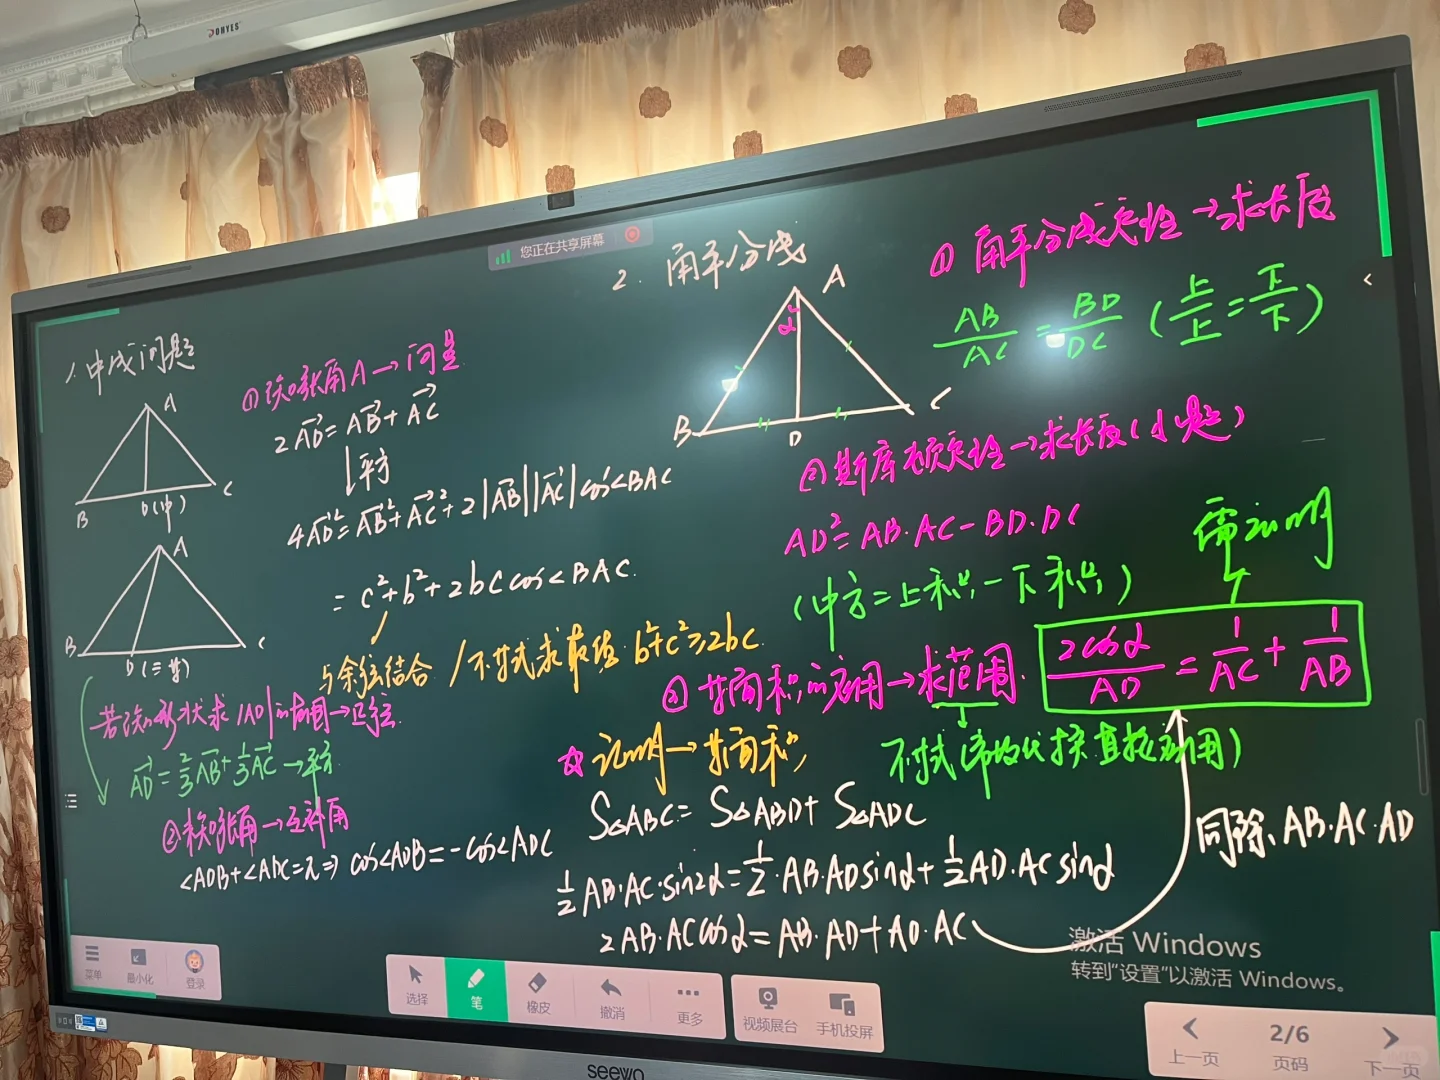 DONYES
您正在共享屏幕
1. 中线问题
A
B
D(中)
C
A
B
D(三等)
C
①知张角A→向量
2AD=AB+AC
↓平方
4AD²=AB²+AC²+2|AB||AC|cos<BAC
=c²+b²+2bccos<BAC.
与余弦结合 / 不等式求最值 b²+c²≥2bc.
AD=2/3AB+1/3AC→平方
→互补角
<ADB+<ADC=π⇒cos<ADB=-cos<ADC
2. 角平分线
A
α
B
D
C
①角平分线定理→求长度
AB/AC=BD/DC (上/上=下/下)
②斯库顿定理→求长度(小题)
AD²=AB·AC-BD·DC
(中方=上积-下积)
需证明
③等面积的应用→求范围.
2cosα/AD=1/AC+1/AB
☆证明→等面积
S△ABC=S△ABD+S△ADC
1/2AB·AC·sin2α=1/2·AB·ADsinα+1/2AD·ACsinα
2AB·ACcosα=AB·AD+AD·AC
同除AB·AC·AD
激活 Windows
转到"设置"以激活 Windows。
菜单
最小化
登录
选择
笔
橡皮
撤消
更多
视频展台
手机投屏
上一页
2/6
页码
下一页
seewo